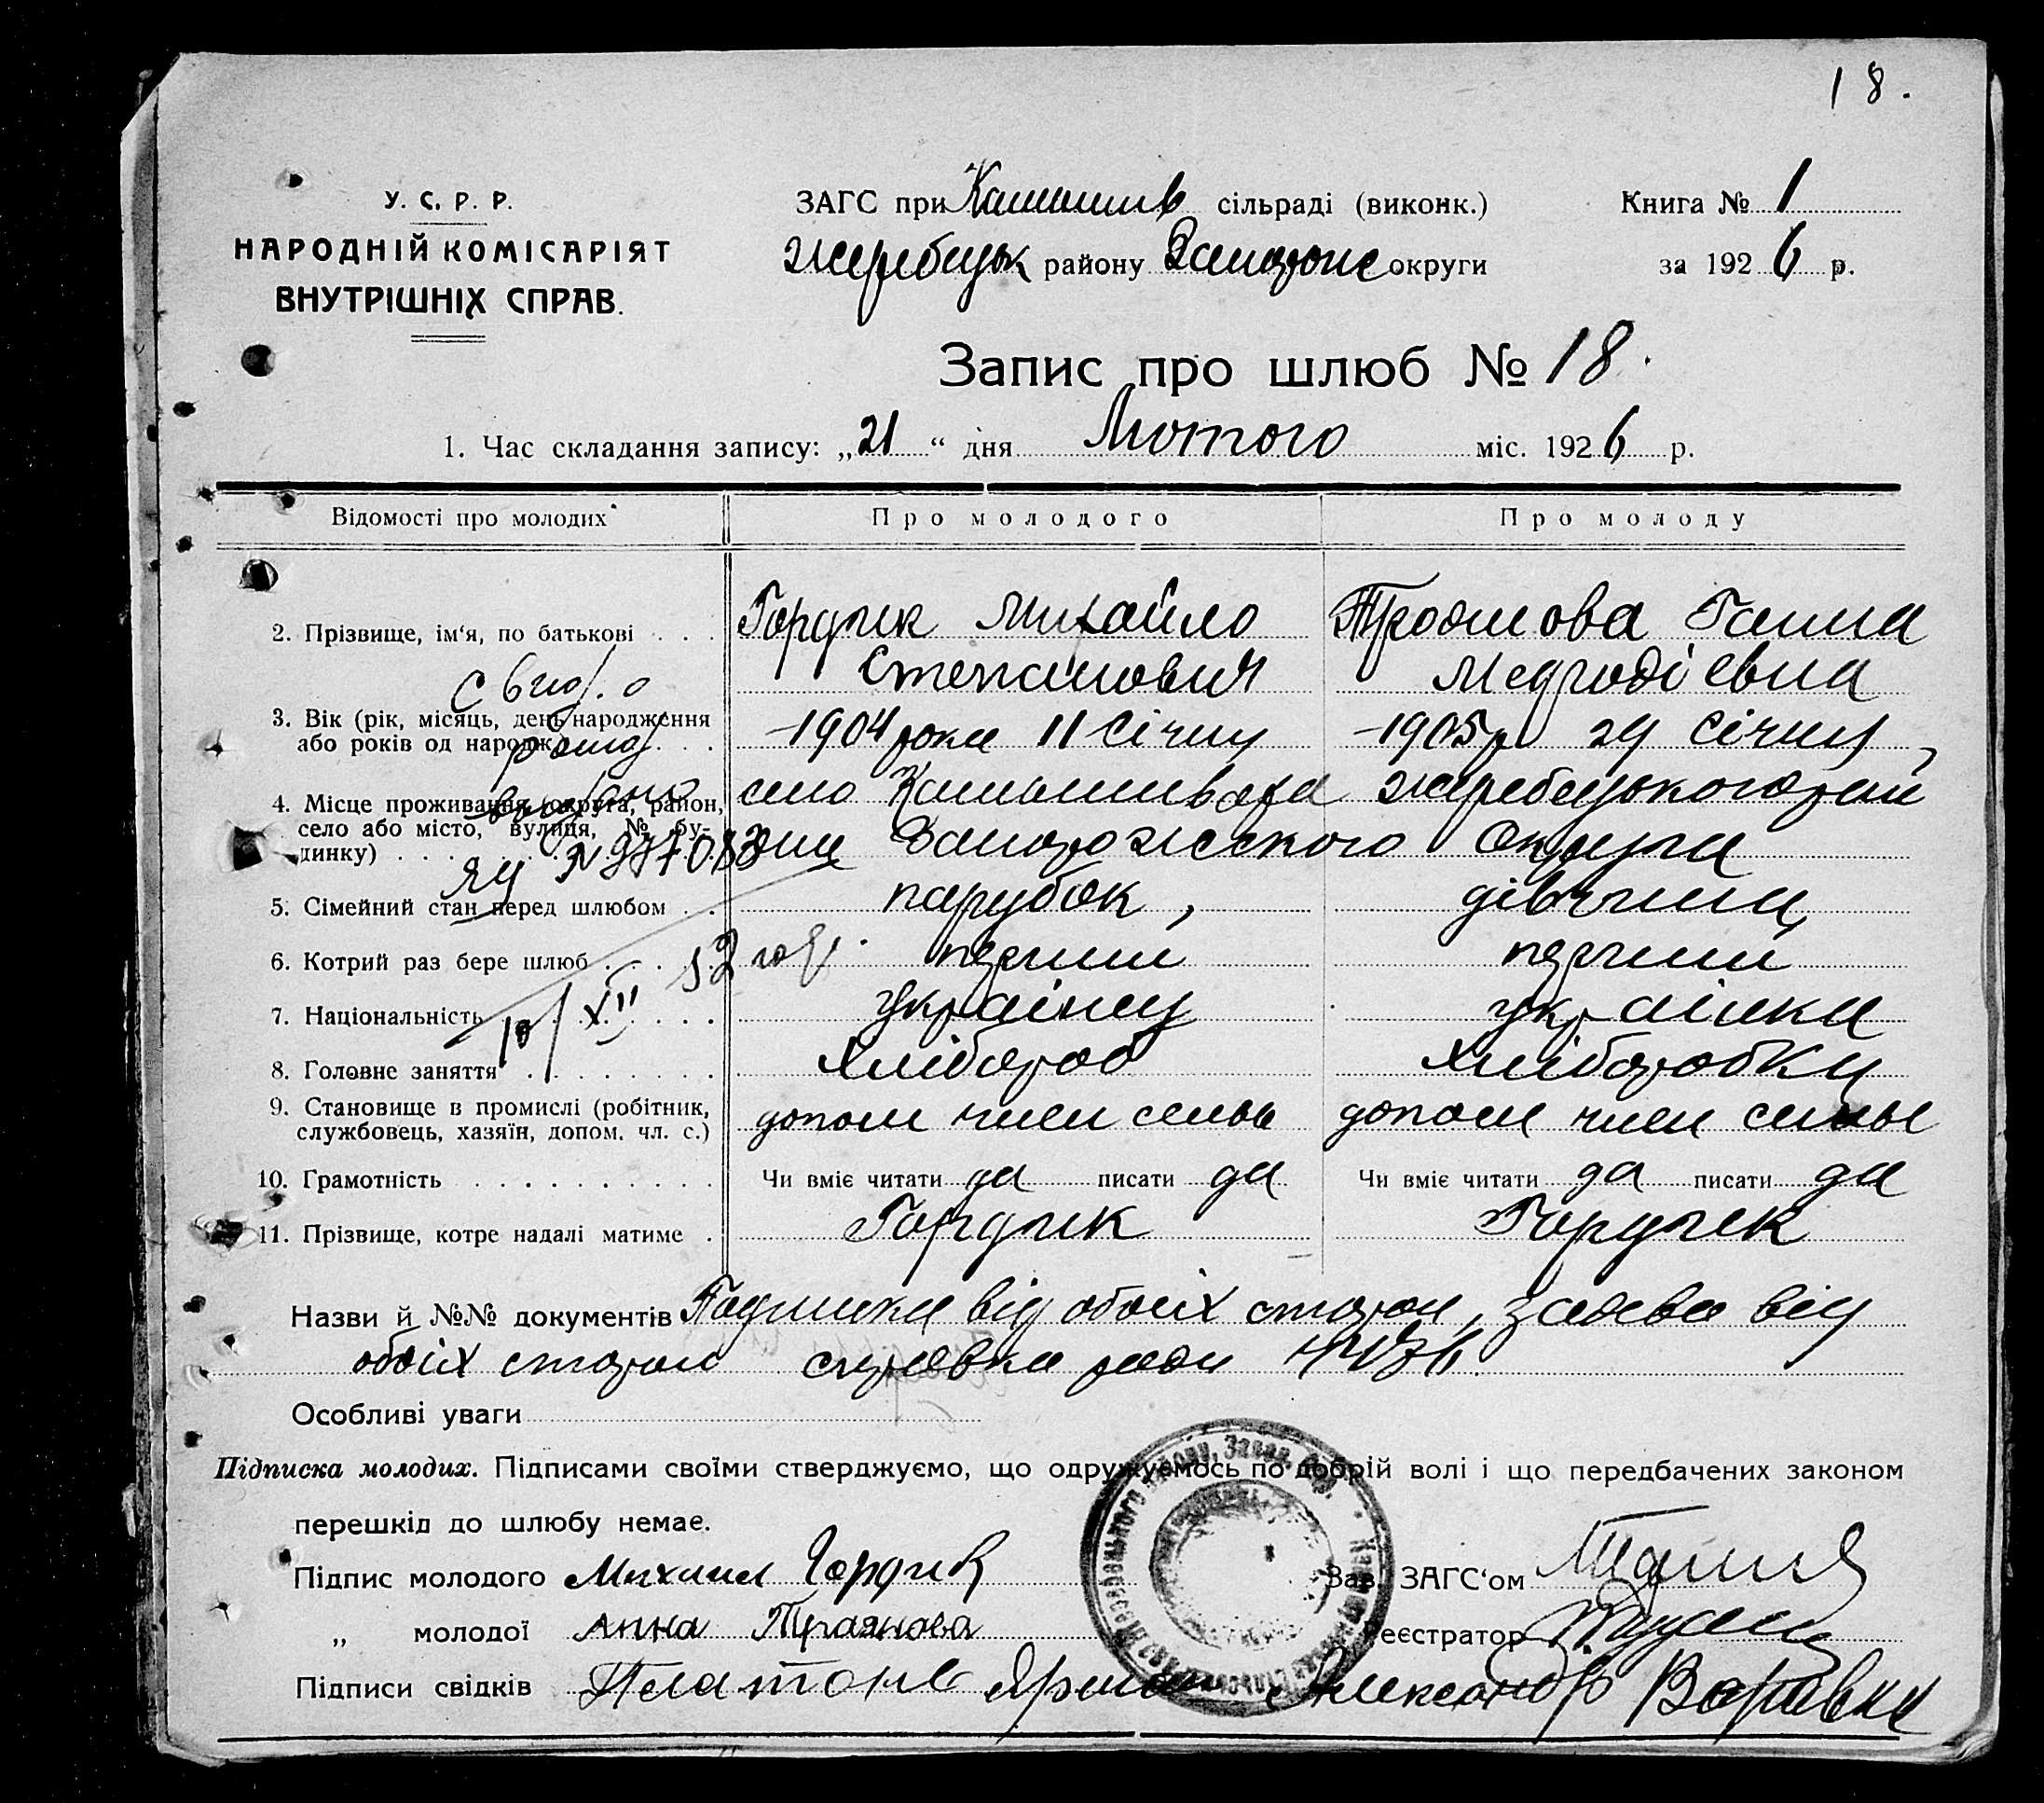 18.
У. С. Р. Р.
НАРОДНІЙ КОМІСАРІЯТ
ВНУТРІШНІХ СПРАВ.
ЗАГС при Камишив сільраді (виконк.)
Жеребецьк району Запорож округи
Книга № 1
за 1926 р.
Запис про шлюб № 18.
1. Час складання запису: „21“ дня Лютого міс. 1926 р.
Відомості про молодих
Про молодого
Про молоду
2. Прізвище, ім'я, по батькові . . .
Гордик Михайло
Степанович
Троянова Ганна
Мефодіевна
3. Вік (рік, місяць, день народження
або років од народж.) . . .
1904 року 11 Січня
1905р 29 Січня
4. Місце проживання (округа, район,
село або місто, вулиця, № бу-
динку) . . .
село Камишиваха Жеребецького рай
Запорожского Округа
5. Сімейний стан перед шлюбом . .
парубок,
дівчина
6. Котрий раз бере шлюб . . .
перший
перший
7. Національність . . .
українец
українка
8. Головне заняття . . .
Хлібороб
Хліборобка
9. Становище в промислі (робітник,
службовець, хазяїн, допом. чл. с.)
допом член семьи
допом член семьи
10. Грамотність . . .
Чи вміє читати да писати да
Чи вміє читати да писати да
11. Прізвище, котре надалі матиме .
Гордик
Гордик
10/XII 52 год.
Назви й №№ документів Подписка від обоіх сторон, заява від
обоіх сторон справка ради
Особливі уваги
Підписка молодих. Підписами своїми стверджуємо, що одружуємось по добрій волі і що передбачених законом
перешкід до шлюбу немає.
Підпис молодого Михаил Гордик
„ молодої Анна Троянова
Підписи свідків Платон Ярмак Александр Варавка
Зав. ЗАГС'ом
Реєстратор